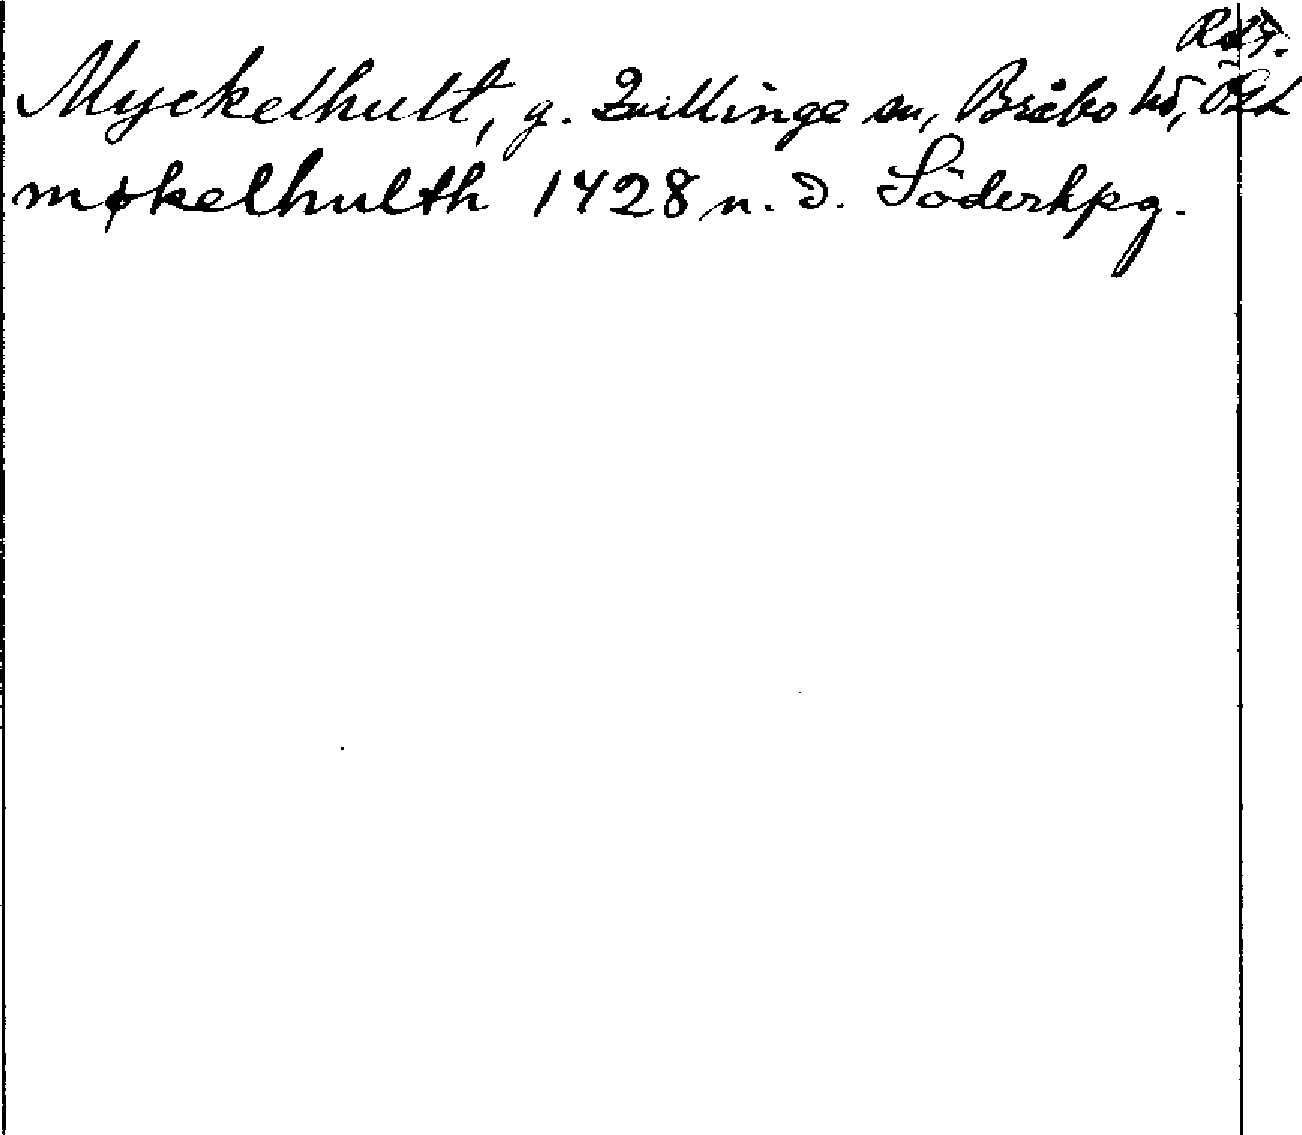 Myckelhult, g. Qvillinge sn, Bråbo hd, Ögl
møkelhulth 1428 n. d. Söderkpg.